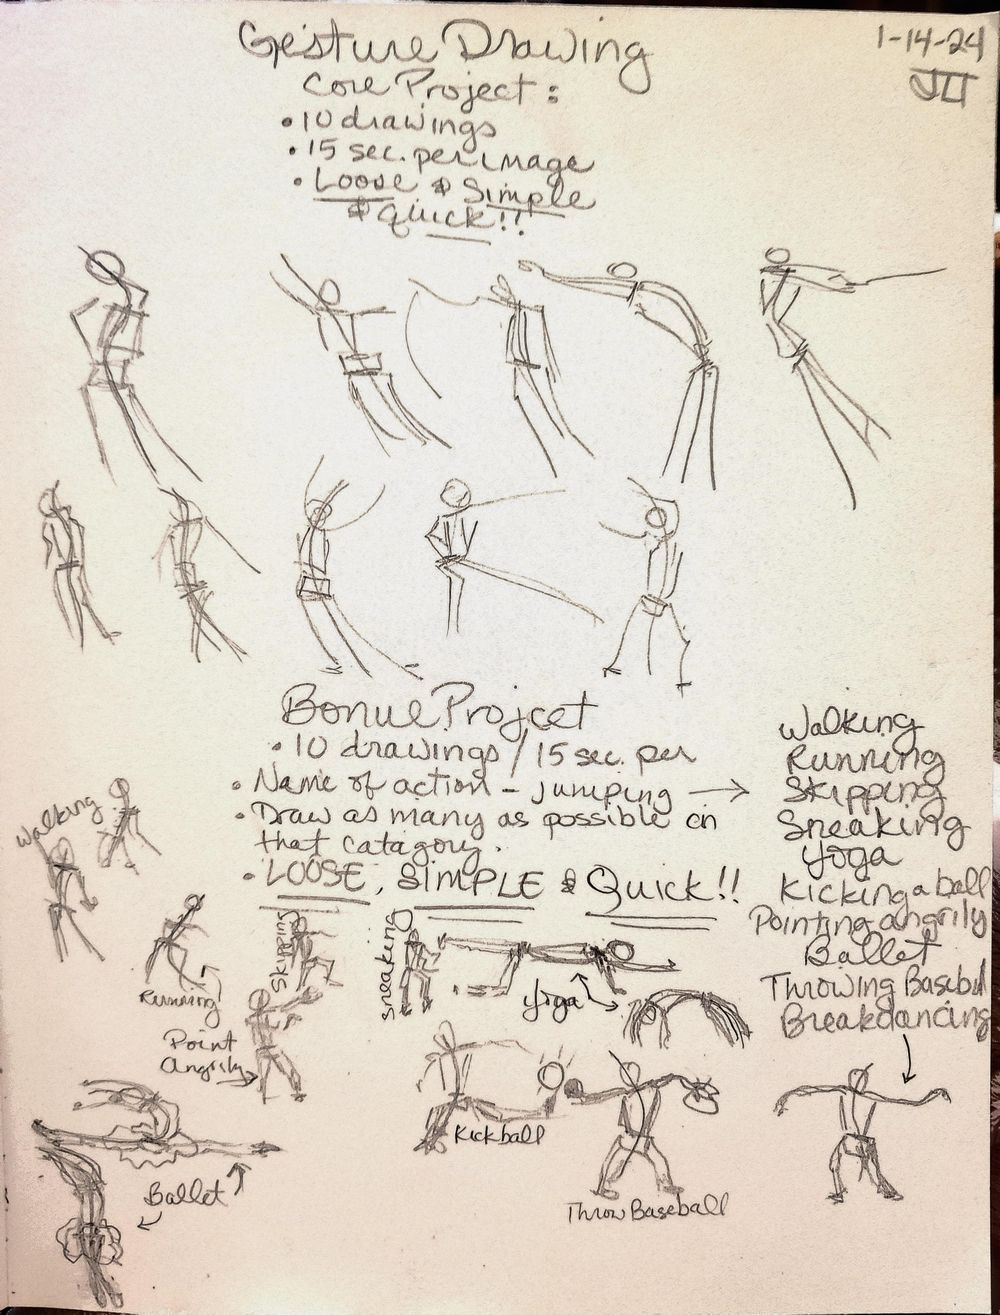 Gesture Drawing
1-14-24
Core Project:
• 10 drawings
• 15 sec. per image
• Loose & Simple
& Quick!!
Bonue Projcet
• 10 drawings / 15 sec. per
• Name of action - jumping →
• Draw as many as possible on
that catagory.
• LOOSE, SIMPLE & Quick!!
Walking
Running
Skipping
Sneaking
Yoga
Kicking a ball
Pointing angrily
Ballet
Throwing Baseball
Breakdancing
Walking
Running
Skipping
Sneaking
Yoga
Point
Angrily
Kickball
Ballet
Throw Baseball